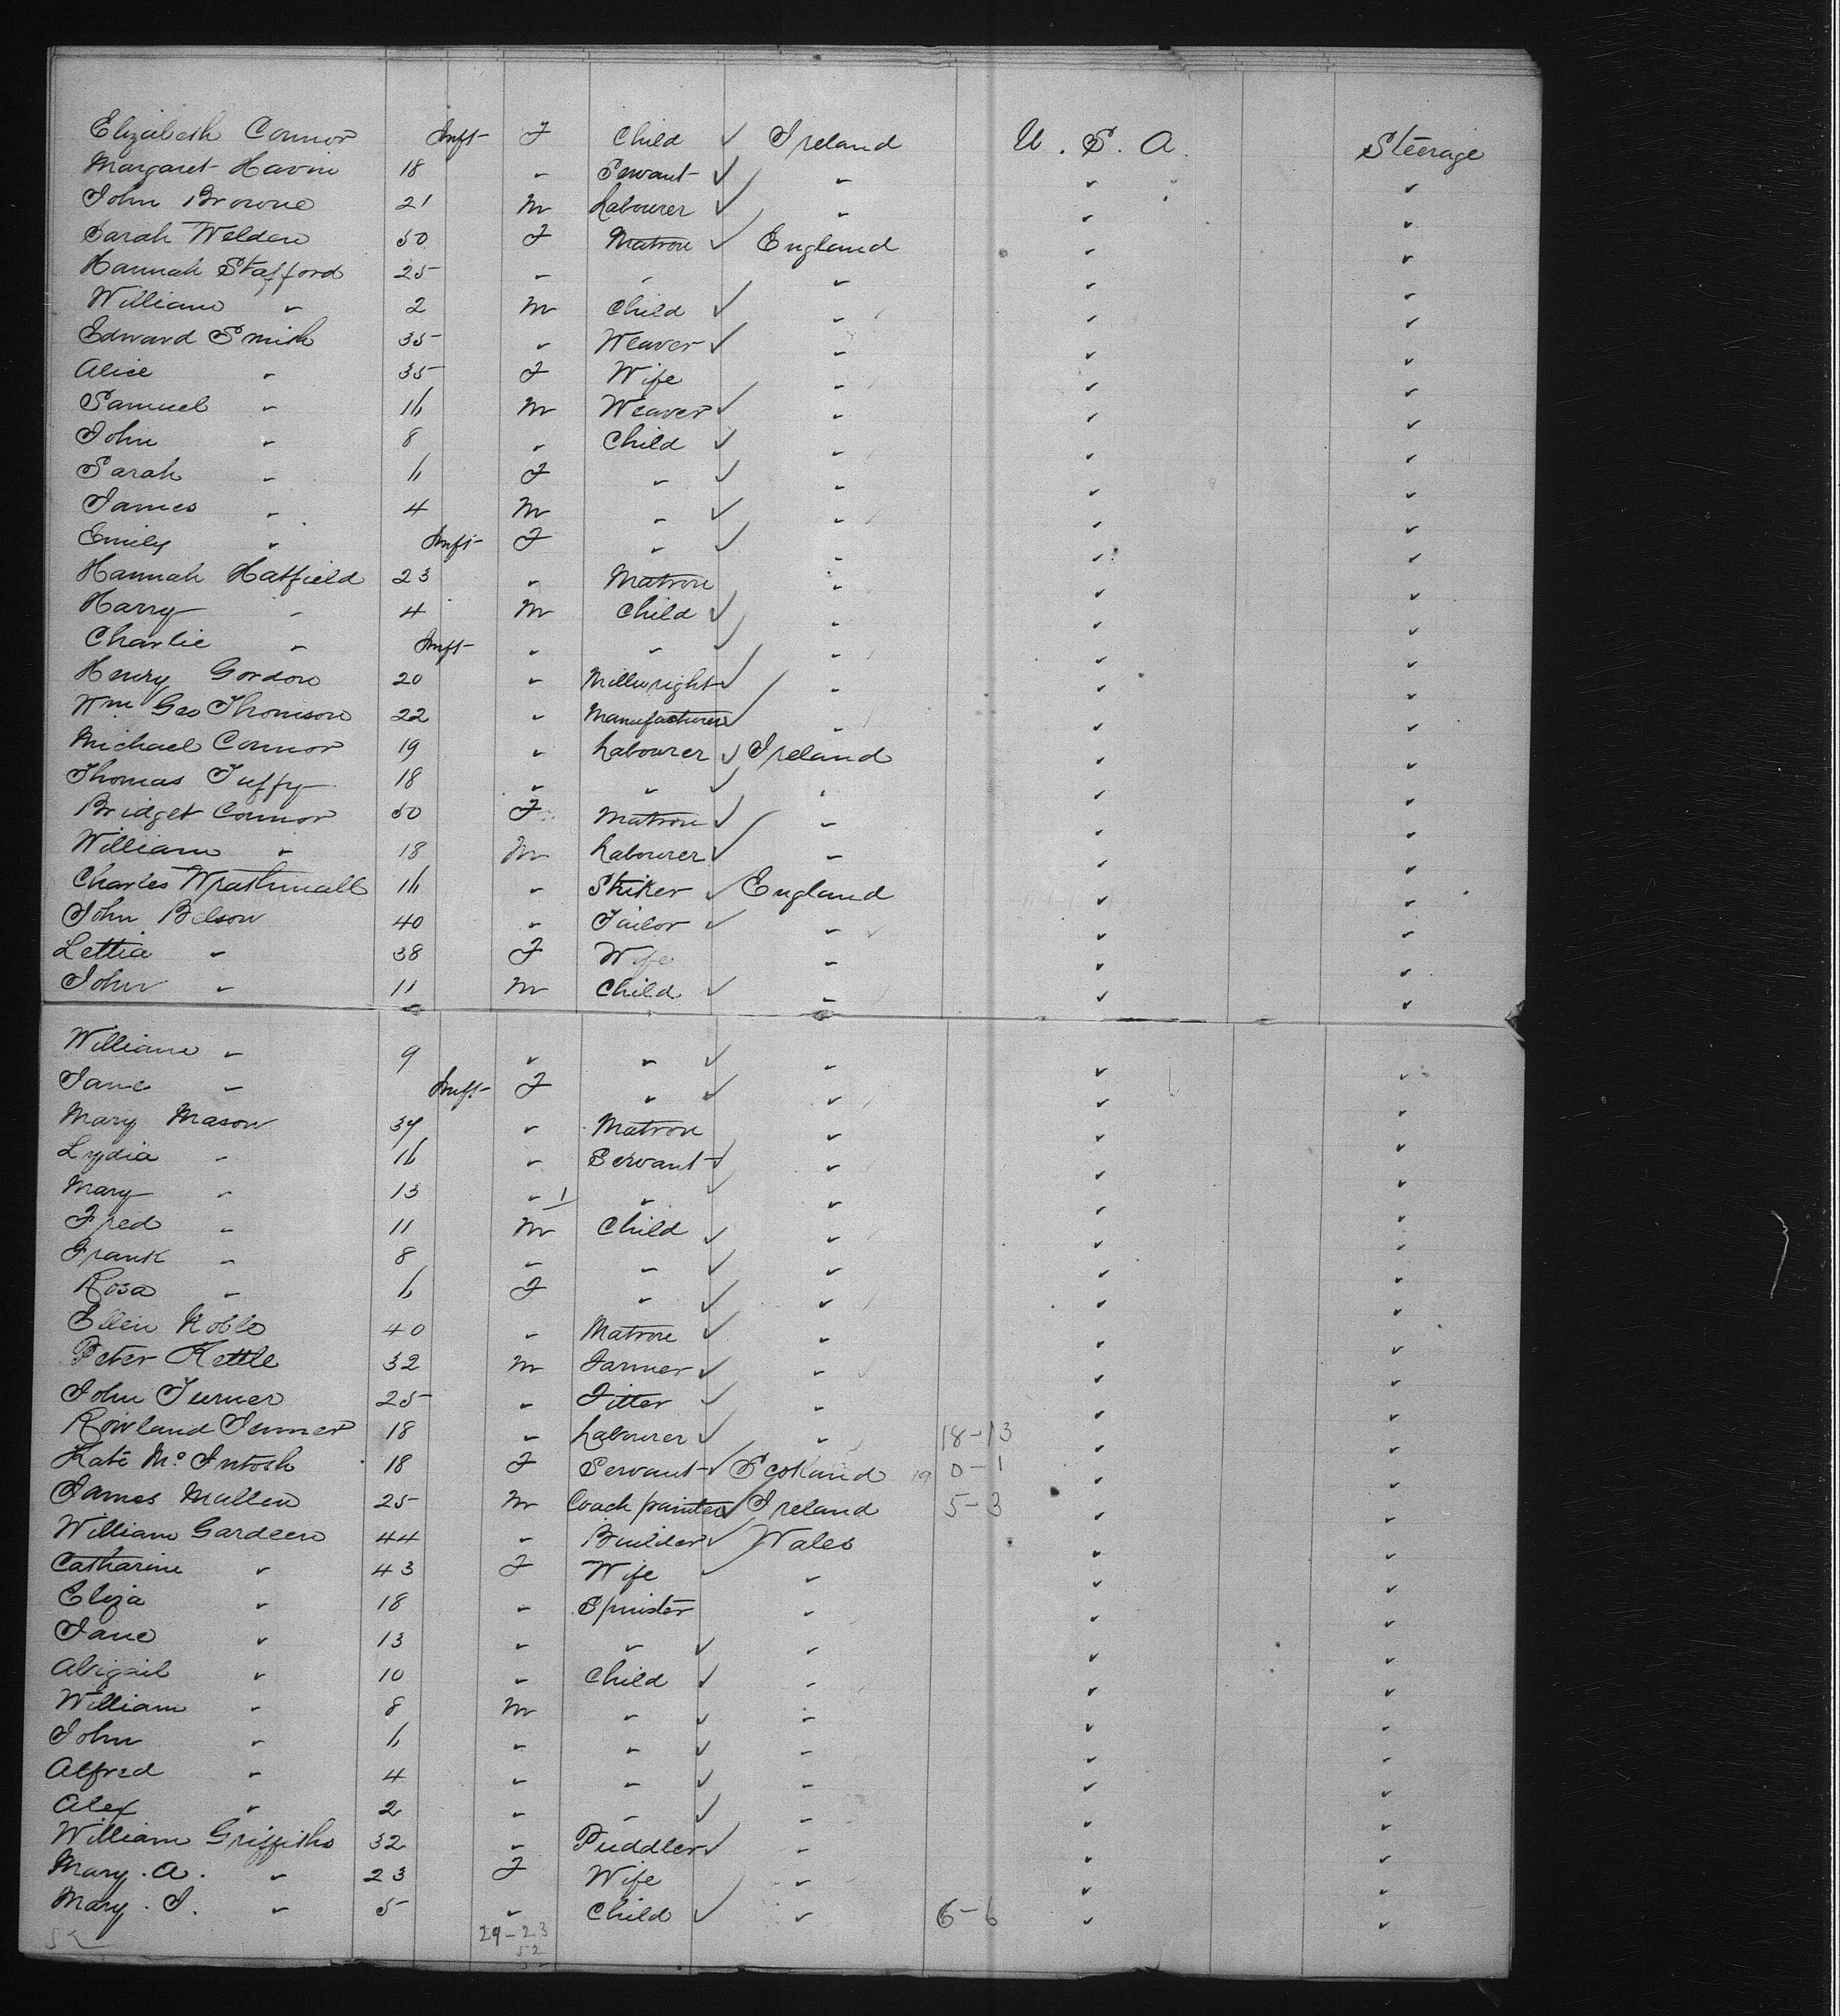 Elizabeth Connor Inft F Child ✓ Ireland U. S. A. Steerage
Margaret Havin 18 " Servant ✓ " " "
John Browne 21 M Labourer ✓ " " "
Sarah Weldon 50 F Matron ✓ England " "
Hannah Stafford 25 " " " " "
William " 2 M Child ✓ " " "
Edward Smith 35 " Weaver ✓ " " "
Alice " 35 F Wife " " "
Samuel " 16 M Weaver ✓ " " "
John " 8 " Child ✓ " " "
Sarah " 6 F " ✓ " " "
James " 4 M " ✓ " " "
Emily " Inft F " ✓ " " "
Hannah Hatfield 23 " Matron " " "
Harry " 4 M Child ✓ " " "
Charlie " Inft " " ✓ " " "
Henry Gordon 20 " Millwright ✓ " " "
Wm Geo Thomson 22 " Manufacturer ✓ " " "
Michael Connor 19 " Labourer ✓ Ireland " "
Thomas Tuffy 18 " " ✓ " " "
Bridget Connor 50 F Matron ✓ " " "
William " 18 M Labourer ✓ " " "
Charles Wrathmall 16 " Striker ✓ England " "
John Belson 40 " Tailor ✓ " " "
Lettia " 38 F Wife " " "
John " 11 M Child ✓ " " "
William " 9 " " ✓ " " "
Jane " Inft F " ✓ " " "
Mary Mason 34 " Matron " " "
Lydia " 16 " Servant ✓ " " "
Mary " 13 " 1 " ✓ " " "
Fred " 11 M Child ✓ " " "
Frank " 8 " " ✓ " " "
Rosa " 6 F " ✓ " " "
Ellen Noble 40 " Matron ✓ " " "
Peter Kettle 32 M Farmer ✓ " " "
John Turner 25 " Fitter ✓ " " "
Rowland Turner 18 " Labourer ✓ " 18-13 " "
Kate McIntosh 18 F Servant ✓ Scotland 0-1 " "
James Mullen 25 M Coach painter ✓ Ireland 5-3 " "
William Gardeen 44 " Builder ✓ Wales " "
Catharine " 43 F Wife ✓ " " "
Eliza " 18 " Spinster " " "
Jane " 13 " " ✓ " " "
Abigail " 10 " Child ✓ " " "
William " 8 M " ✓ " " "
John " 6 " " ✓ " " "
Alfred " 4 " " ✓ " " "
Alex " 2 " " ✓ " " "
William Griffiths 32 " Puddler ✓ " " "
Mary. A. " 23 F Wife " " "
Mary. J. " 5 " Child ✓ " 6-6 " "
52 29-23
52